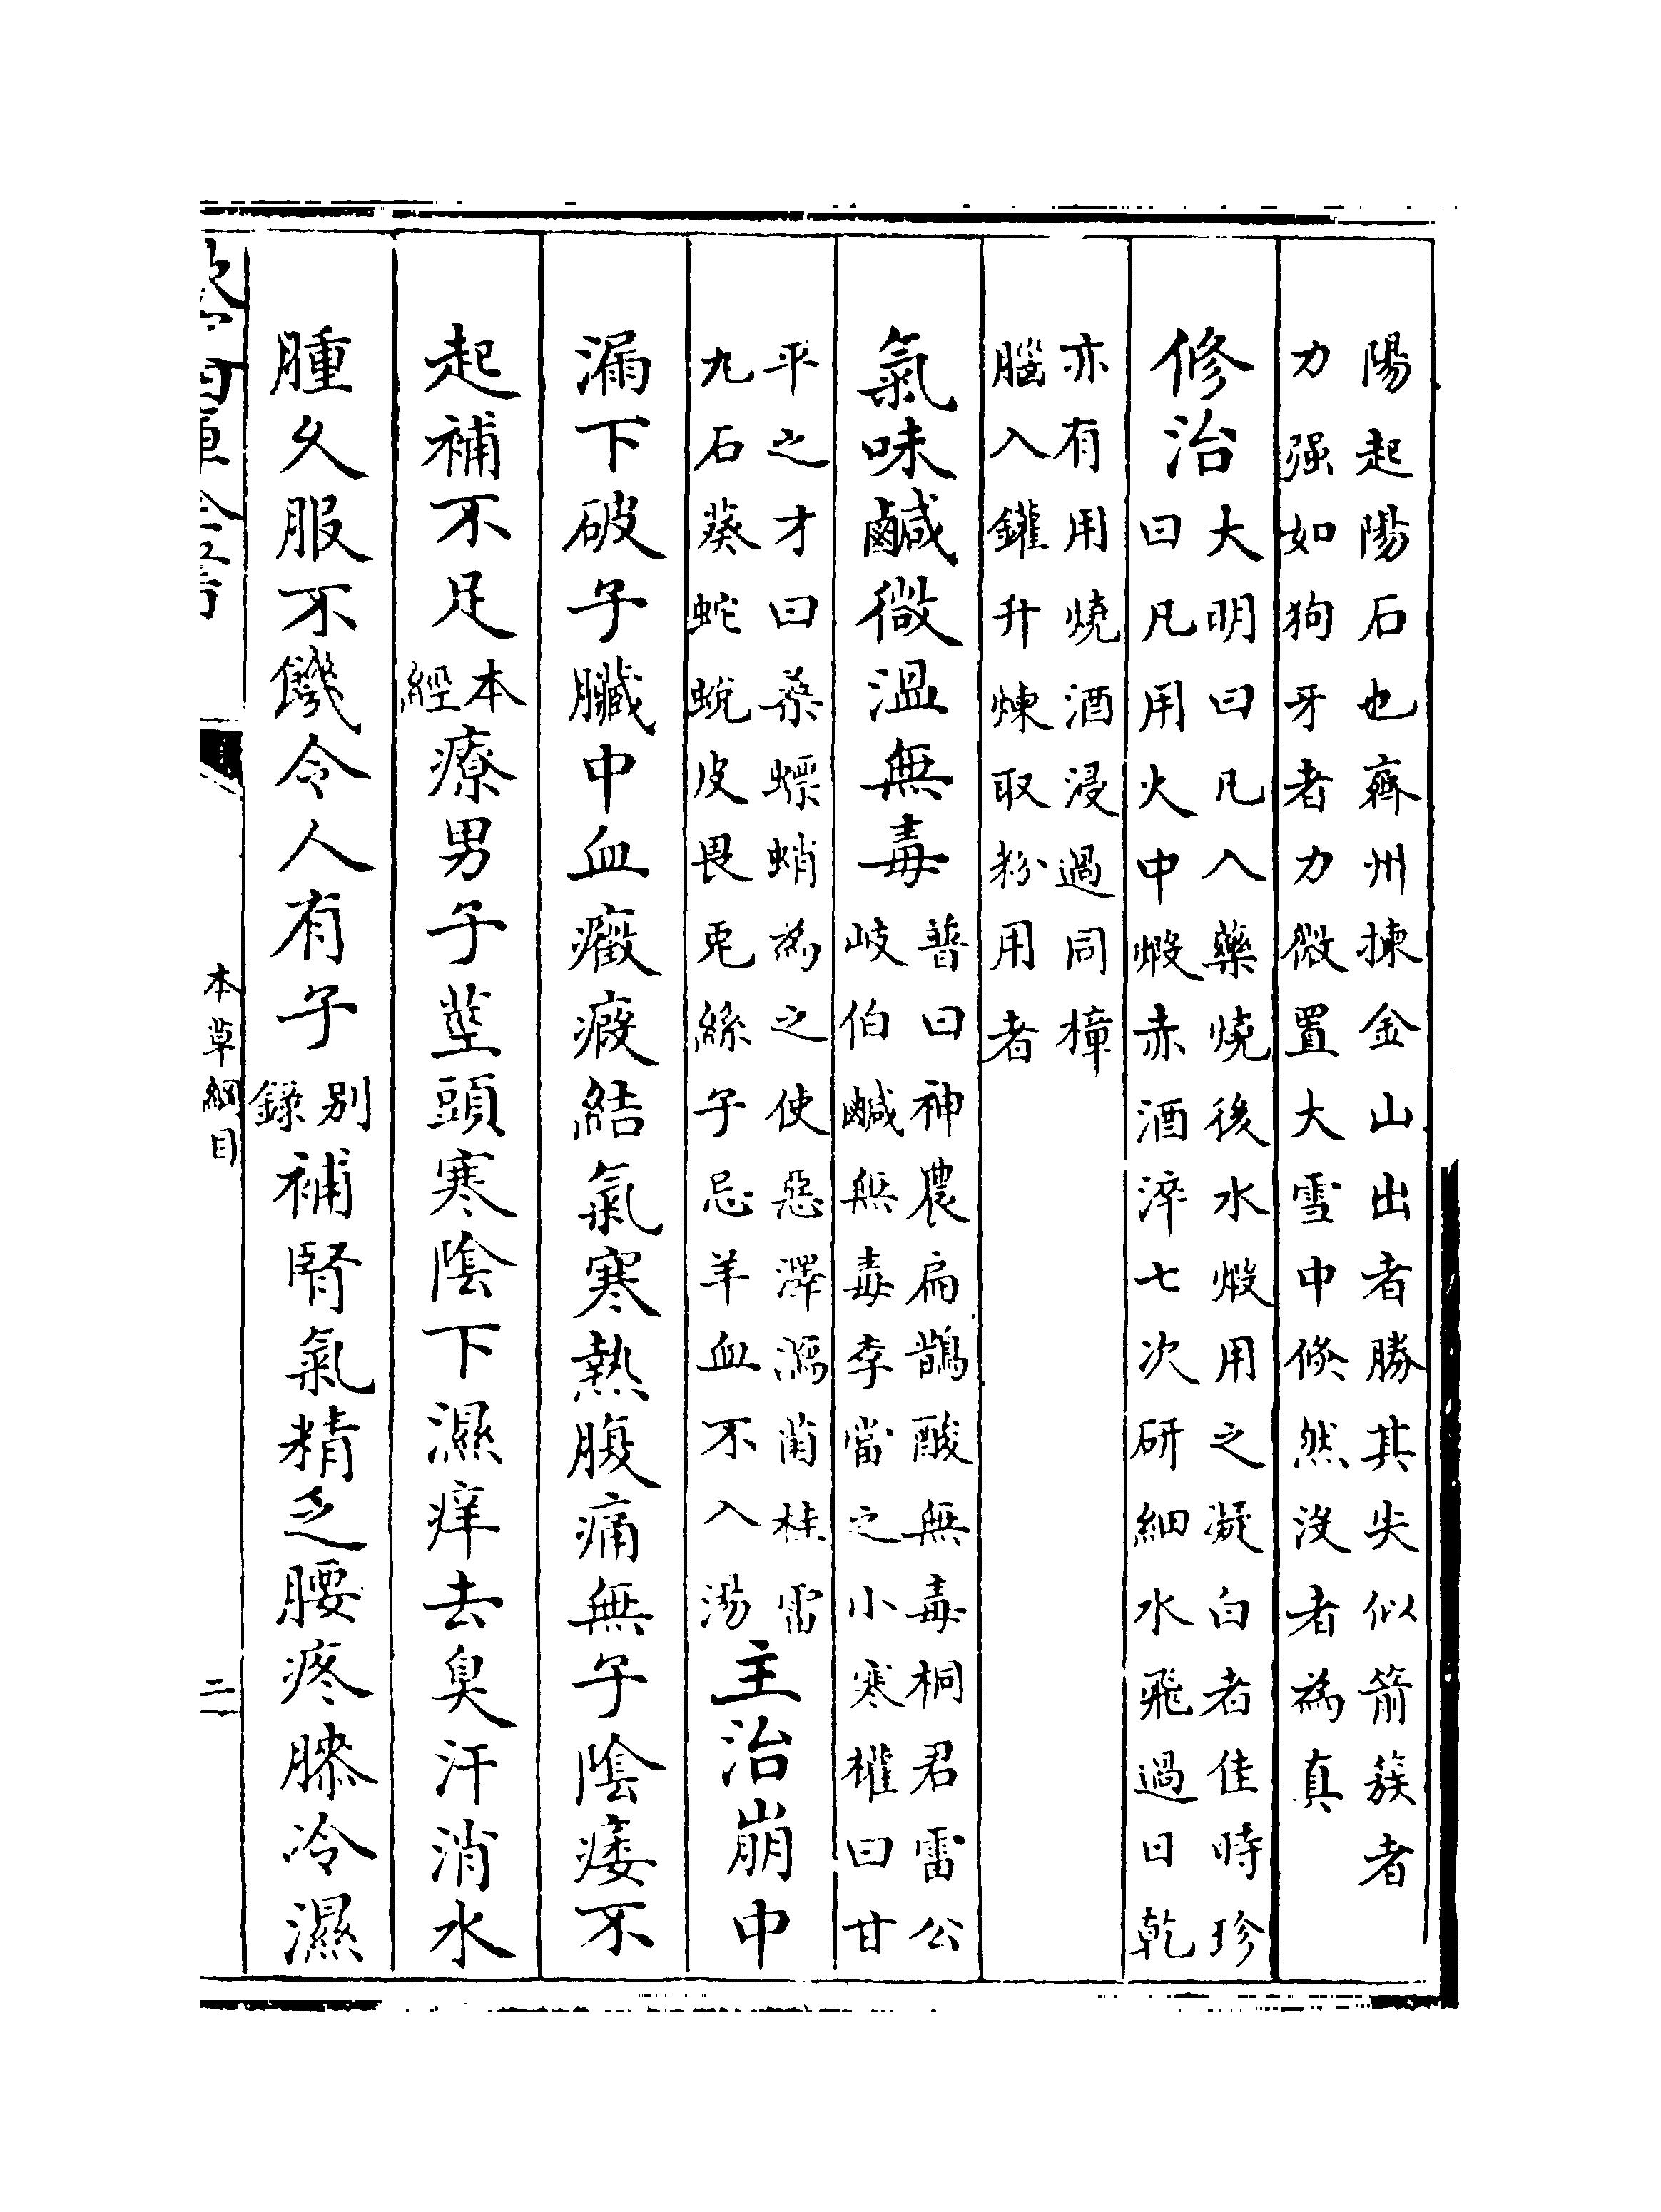 陽起陽石也齊州揀金山出者勝其尖似箭簇者
力强如狗牙者力微置大雪中倐然没者為真
修治
大明曰凡入藥燒後水煅用之凝白者佳時珍
曰凡用火中煅赤酒淬七次研細水飛過日乾
亦有用燒酒浸過同樟
腦入鑵升煉取粉用者
氣味鹹微温無毒
普曰神農扁鵲酸無毒桐君雷公
岐伯鹹無毒李當之小寒權曰甘
平之才曰桑螵蛸為之使惡澤瀉菌桂雷
丸石葵蛇蛻皮畏兎絲子忌羊血不入湯
主治崩中
漏下破子臟中血癥瘕結氣寒熱腹痛無子陰痿不
起補不足
本
經
療男子莖頭寒陰下濕痒去臭汗消水
腫久服不饑令人有子
别
錄
補腎氣精乏腰疼膝冷濕
欽定四庫全書
本草綱目
二